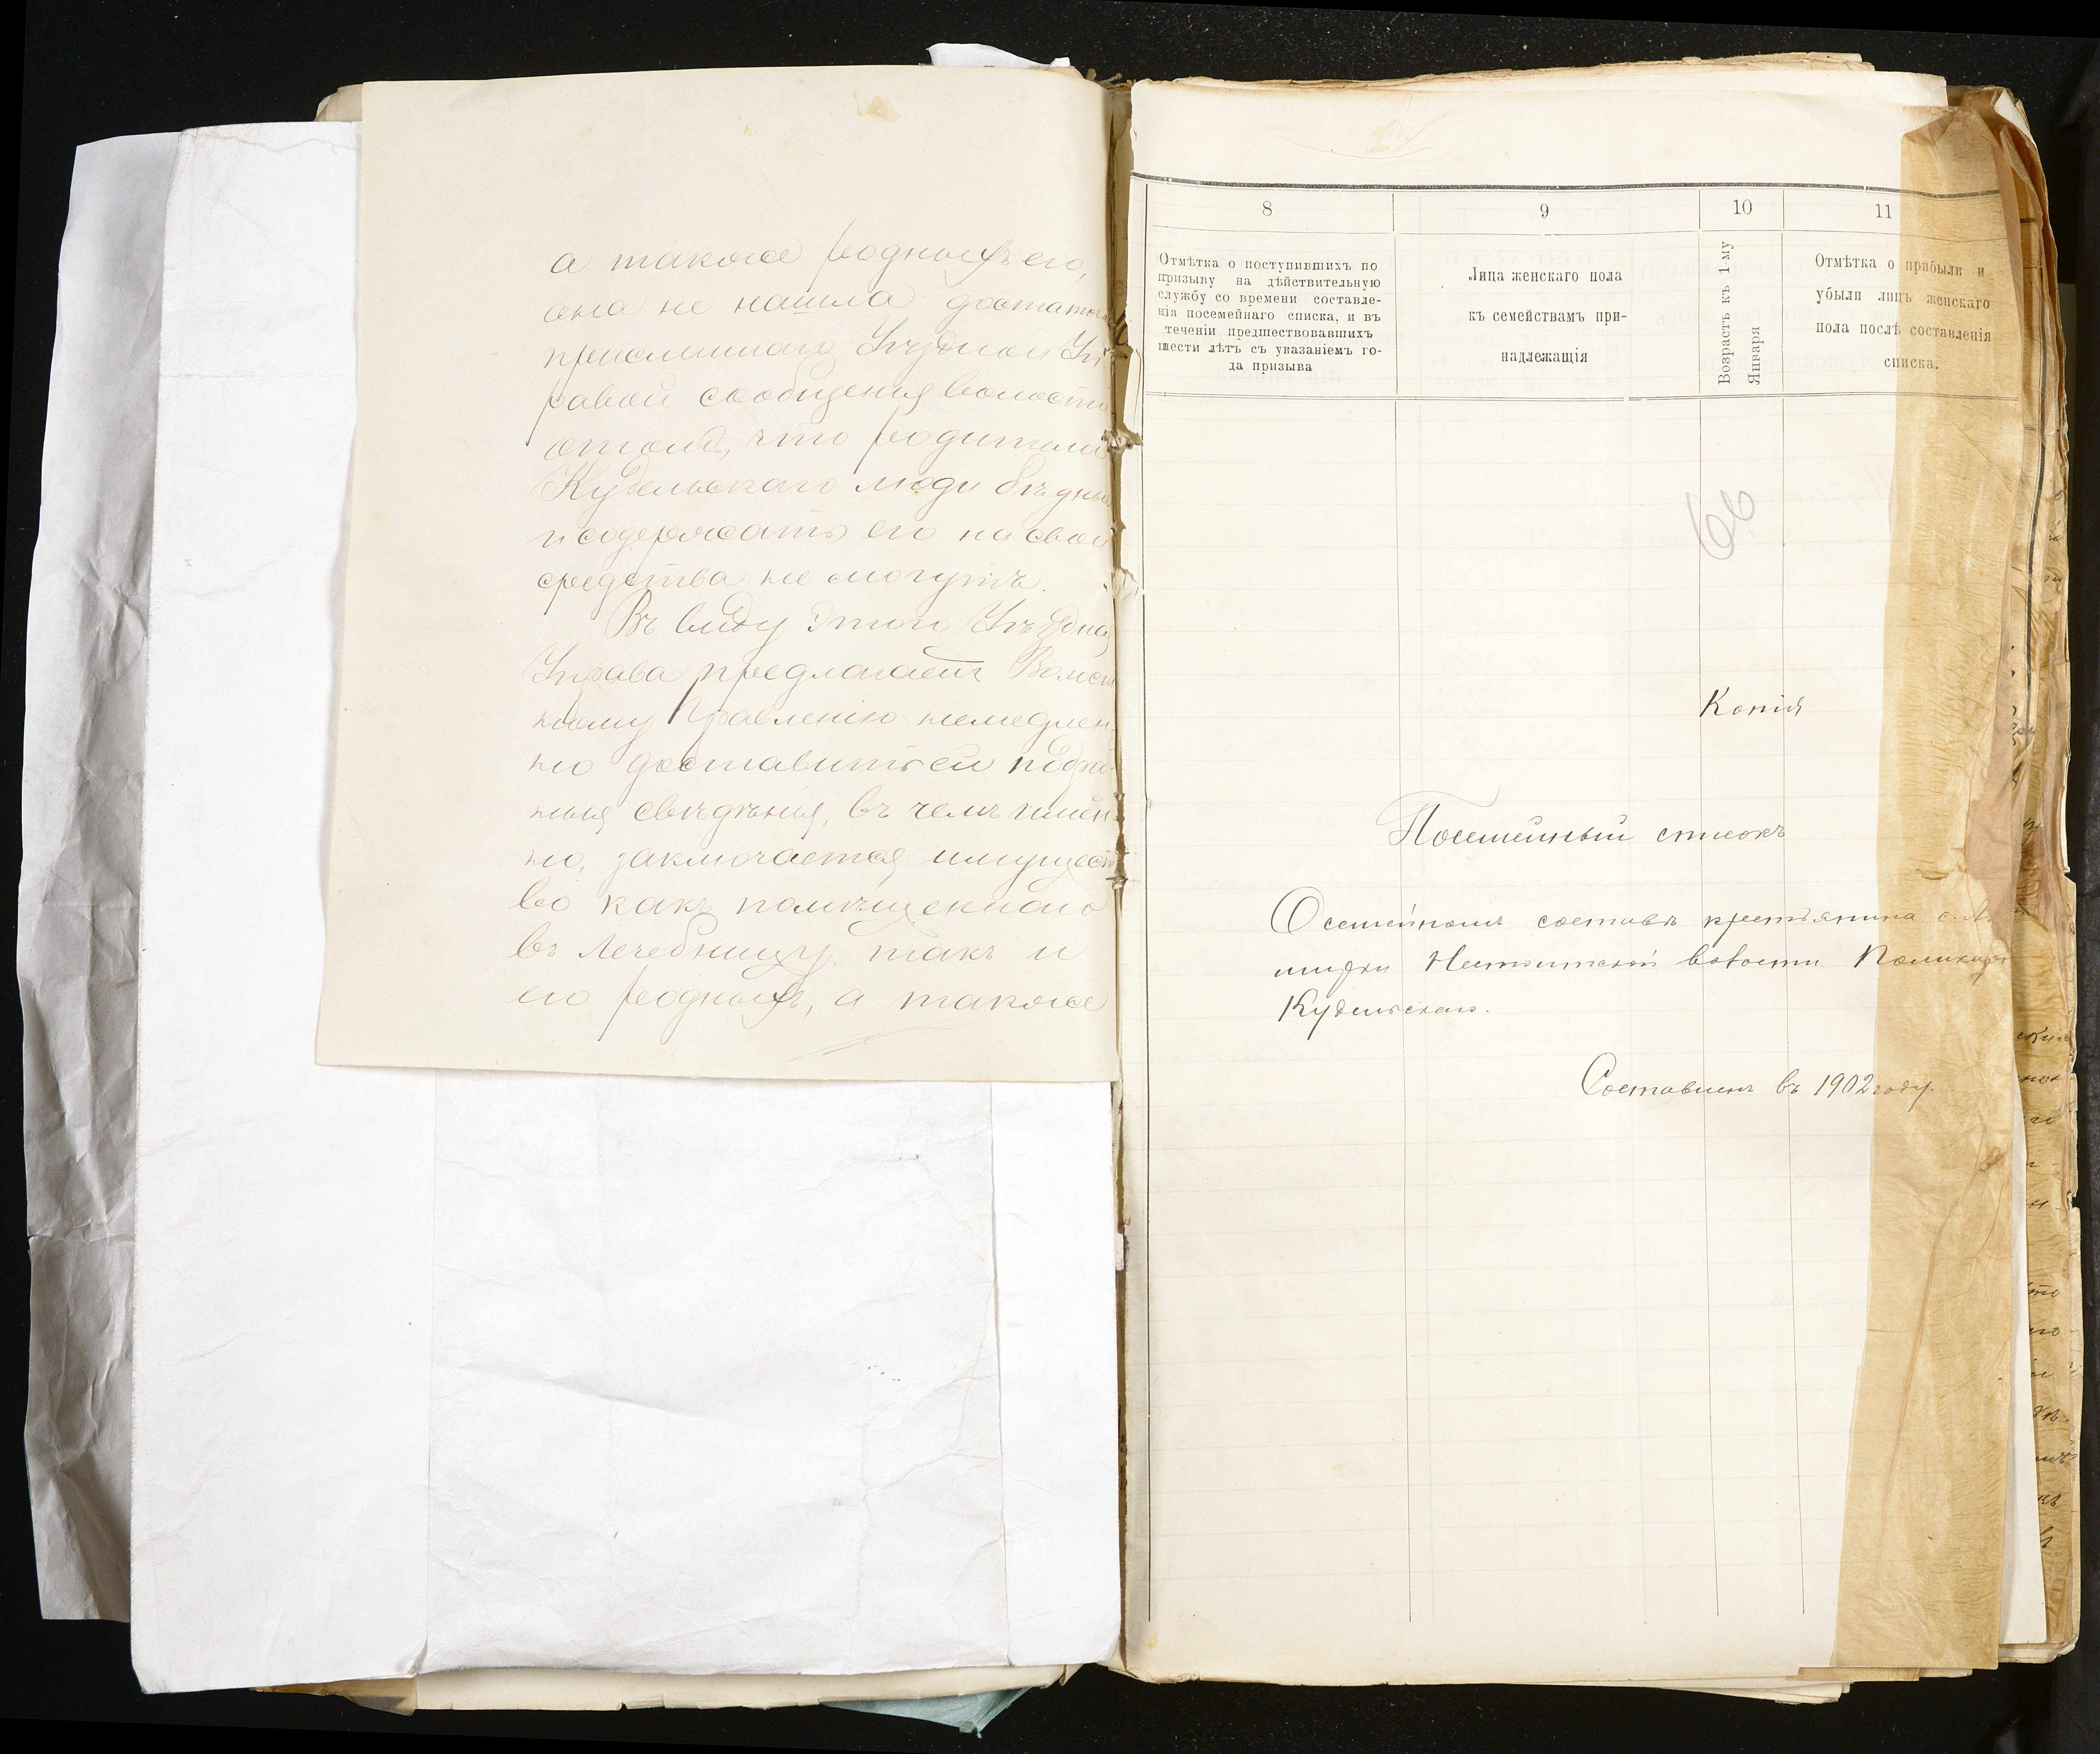 а также родныхъ его,
она не нашла достаточн
присланнаго Уѣздной Уп
равой сообщенія волости
отомъ, что родители
Кудельскаго люди бѣдные
и содержать его на свои
средства не могутъ.
Въ виду этого Уѣздная
Управа предлагаетъ Волост
ному Правленію немедлен
но доставить ей подроб
ныя свѣдѣнія, въ чемъ имен
но, заключается имущест
во какъ помѣщеннаго
въ лечебницу, такъ и
его родныхъ, а также
8
9
10
11
Отмѣтка о поступившихъ по
призыву на дѣйствительную
службу со времени составле-
нія посемейнаго списка, и въ
теченіи предшествовавшихъ
шести лѣтъ съ указаніемъ го-
да призыва
Лица женскаго пола
къ семействамъ при-
надлежащія
Возрастъ къ 1-му
Января
Отмѣтка о прибыли и
убыли лицъ женскаго
пола послѣ составленія
списка.
66
Копія
Посемейный списокъ
О семейномъ составѣ крестьянина с.
волости
Кудельскаго.
Составленъ въ 1902 году.